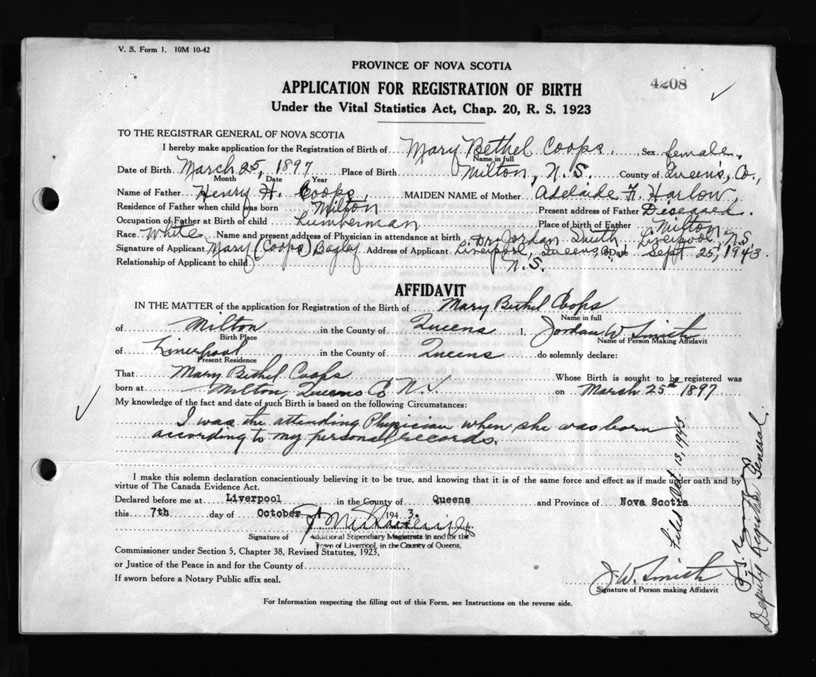 V. S. Form 1. 10M 10-42
PROVINCE OF NOVA SCOTIA
4208
APPLICATION FOR REGISTRATION OF BIRTH
Under the Vital Statistics Act, Chap. 20, R. S. 1923
TO THE REGISTRAR GENERAL OF NOVA SCOTIA
I hereby make application for the Registration of Birth of Mary Bethel Coops. Sex female.
Name in full
Date of Birth March 25, 1897 Place of Birth Milton, N. S. County of Queens, Co.,
Month Date Year
Name of Father Henry H. Coops, MAIDEN NAME of Mother Adelaide F. Harlow,
Residence of Father when child was born Milton Present address of Father Diseased.
Occupation of Father at Birth of child Lumberman Place of birth of Father Milton,
Race White Name and present address of Physician in attendance at birth Dr. Jordan Smith, Liverpool, N.S.
Signature of Applicant Mary (Coops) Address of Applicant Liverpool, Queens, Date Sept. 25, 1943.
Relationship of Applicant to child N. S.
AFFIDAVIT
IN THE MATTER of the application for Registration of the Birth of Mary Bethel Coops
Name in full
of Milton in the County of Queens I, Jordan W. Smith
Birth Place Name of Person Making Affidavit
of Liverpool in the County of Queens do solemnly declare:
Present Residence
That Mary Bethel Coops Whose Birth is sought to be registered was
born at Milton Queens Co N.S. on March 25th 1897
My knowledge of the fact and date of such Birth is based on the following Circumstances:
I was the attending Physician when she was born
according to my personal records.
I make this solemn declaration conscientiously believing it to be true, and knowing that it is of the same force and effect as if made under oath and by
virtue of The Canada Evidence Act.
Declared before me at Liverpool in the County of Queens and Province of Nova Scotia
this 7th day of October 1943.
Signature of Additional Stipendiary Magistrate in and for the
Town of Liverpool, in the County of Queens.
Commissioner under Section 5, Chapter 38, Revised Statutes, 1923,
or Justice of the Peace in and for the County of
If sworn before a Notary Public affix seal.
J. W. Smith
Signature of Person making Affidavit
For Information respecting the filling out of this Form, see Instructions on the reverse side.
Filed Oct. 13, 1943
Deputy Registrar General.